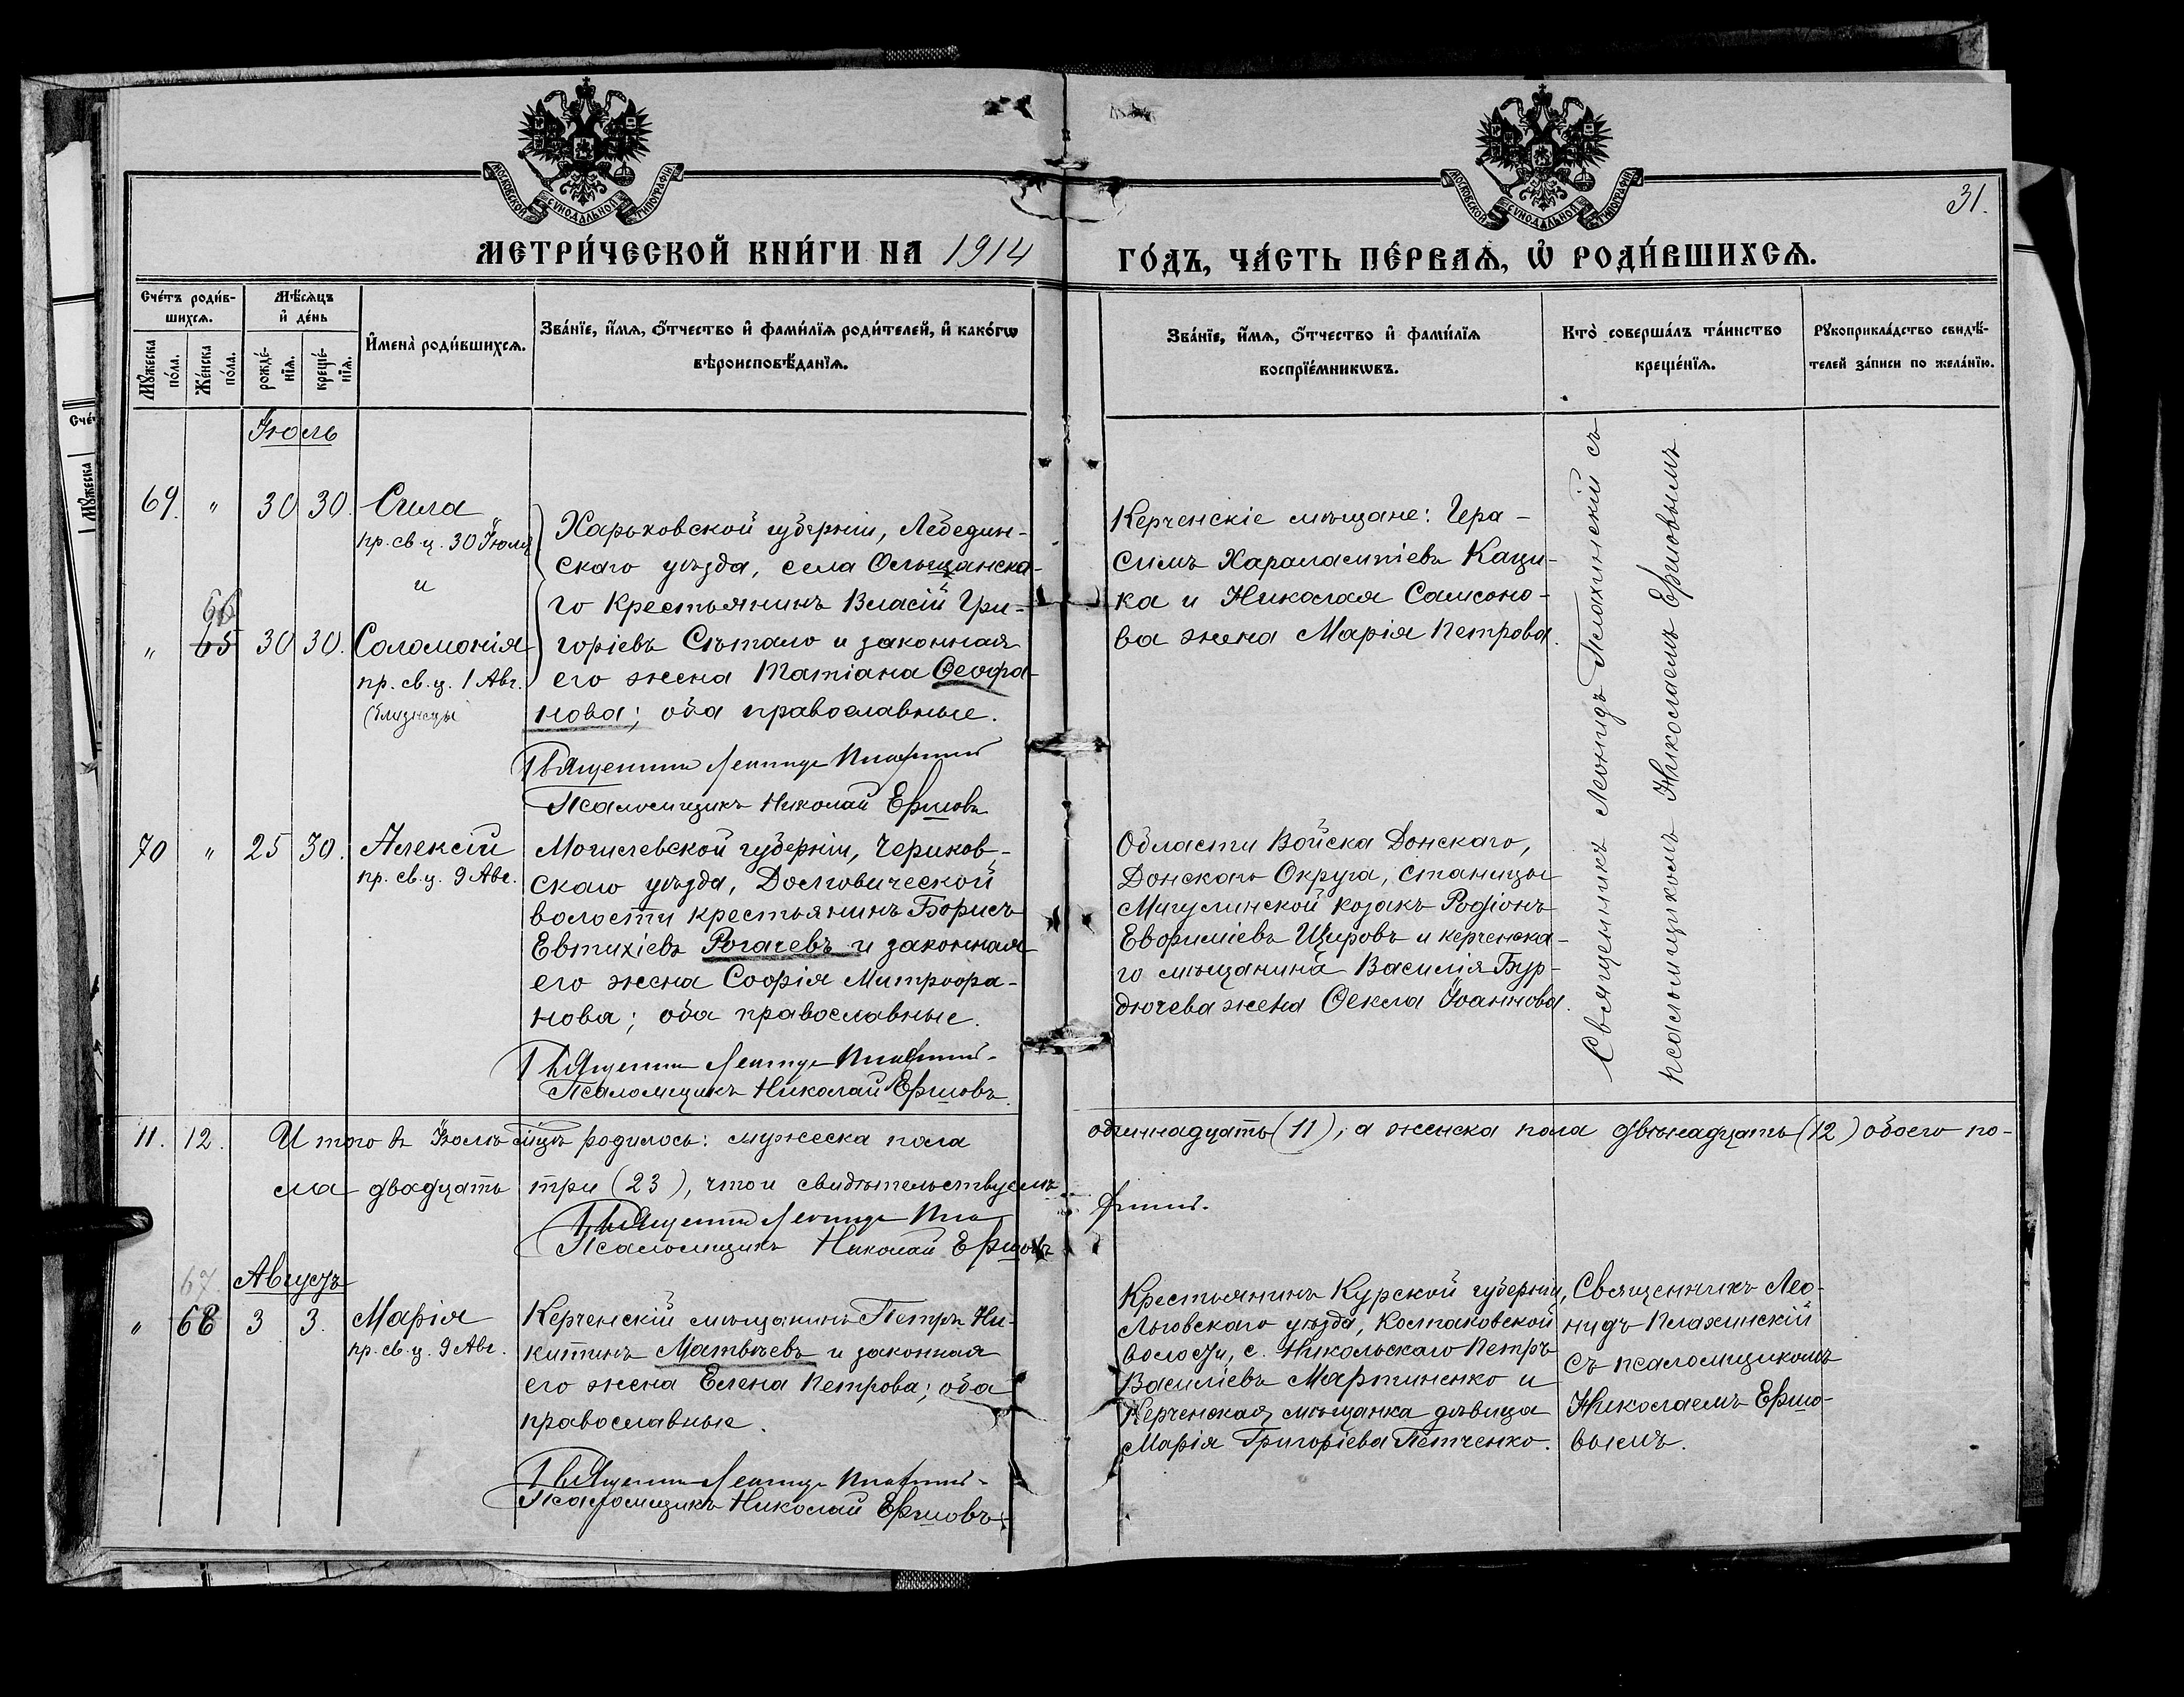 МОСКОВСКОЙ СУНОДАЛЬНОЙ ТИПОГРАФІИ
МОСКОВСКОЙ СУНОДАЛЬНОЙ ТИПОГРАФІИ
31.
МЕТРИ́ЧЕСКОЙ КНИ́ГИ НА 1914
ГО́ДЪ, ЧА́СТЬ ПЕ́РВАѦ, Ѡ҆ РОДИ́ВШИХСѦ.
Сче́тъ роди́в-
шихсѧ.
Мѣ́сѧцъ
и҆ де́нь
Мꙋ́жеска
по́ла.
Же́нска
по́ла.
рожде́-
нїѧ.
креще́-
нїѧ.
И҆мена̀ роди́вшихсѧ.
Зва́нїе, и҆́мѧ, ѻ҆́тчество и҆ фами́лїѧ роди́телей, и҆ како́гѡ
вѣроисповѣ́данїѧ.
Зва́нїе, и҆́мѧ, ѻ҆́тчество и҆ фами́лїѧ
воспрїе́мникѡвъ.
Кто̀ соверша́лъ та́инство
креще́нїѧ.
Рꙋкоприкла́дство свидѣ́-
телей за́писи по жела́нїю.
Іюль
69. " 30 30. Сила
пр. св. ц. 30 Іюля
и
66
" 65 30 30. Соломонія
пр. св. ц. 1 Авг.
близнецы
Харьковской губерніи, Лебедин-
скаго уѣзда, села Ольшанска-
го Крестьянинъ Власій Гри-
горіевъ Сѣтало и законная
его жена Татіана Ѳеофа-
нова; оба православные.
Священникъ Леонидъ Плахинскій
Псаломщикъ Николай Ершовъ
Керченскіе мѣщане: Гера-
симъ Харалампіевъ Каци-
ка и Николая Самсоно-
ва жена Марія Петрова.
Священникъ Леонидъ Плахинскій съ
псаломщикомъ Николаемъ Ершовымъ
70 " 25 30. Алексій
пр. св. ц. 9 Авг.
Могилевской губерніи, Чериков-
скаго уѣзда, Долговической
волости крестьянинъ Борисъ
Евтихіевъ Рогачевъ и законная
его жена Софія Митрофа-
нова; оба православные.
Священникъ Леонидъ Плахинскій
Псаломщикъ Николай Ершовъ.
Области Войска Донскаго,
Донскаго Округа, станицы
Мигулинской козакъ Родіонъ
Евфиміевъ Щировъ и керченска-
го мѣщанина Василія Бур-
дючева жена Ѳекла Іоаннова.
11. 12. Итого въ Іюлѣ мцѣ родилось: мужеска пола
одиннадцать (11), а женска пола двѣнадцать (12) обоего по-
ла двадцать три (23), что и свидѣтельствуемъ
Священникъ Леонидъ Плахинскій.
Псаломщикъ Николай Ершовъ
Августъ
67
" 66 3 3. Марія
пр. св. ц. 9 Авг.
Керченскій мѣщанинъ Петръ Ни-
китинъ Матвѣевъ и законная
его жена Елена Петрова; оба
православные.
Священникъ Леонидъ Плахинскій
Псаломщикъ Николай Ершовъ
Крестьянинъ Курской губерніи,
Льговскаго уѣзда, Колпаковской
волости, с. Никольскаго Петръ
Василіевъ Мартиненко и
Керченская мѣщанка дѣвица
Марія Григоріева Петченко.
Священникъ Лео-
нидъ Плахинскій
съ псаломщикомъ
Николаемъ Ершо-
вымъ.